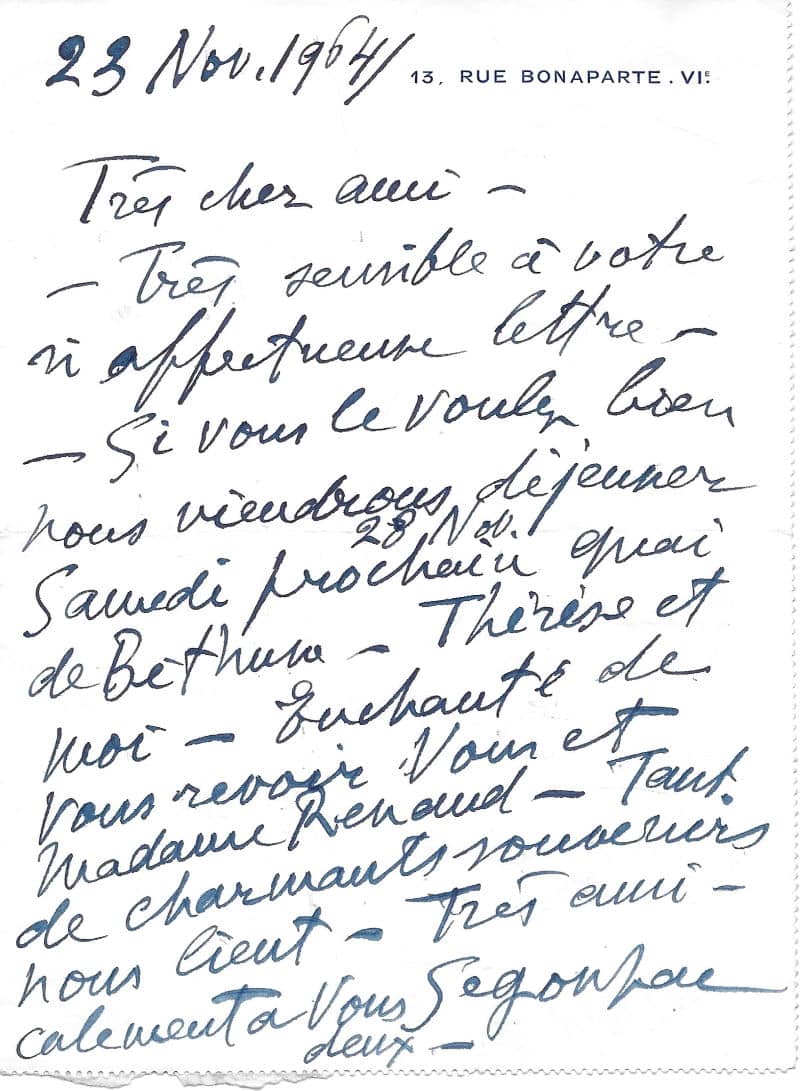 23 Nov. 1964/
13, RUE BONAPARTE. VIE.
Très cher ami –
– Très sensible à votre
si affectueuse lettre –
– Si vous le voulez bien
nous viendrons déjeuner
28 Nov.
Samedi prochain quai
de Béthune – Thérèse et
moi – Enchanté de
vous revoir Vous et
Madame Renaud – Tant
de charmants souvenirs
nous lient – Très ami-
calement à Vous
deux –
Segonzac